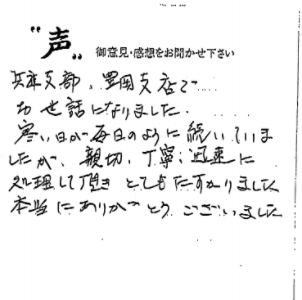 "声"
御意見・感想をお聞かせ下さい
兵庫支部、豊岡支店で
お世話になりました.
寒い日が毎日のように続いていま
したが、親切、丁寧、迅速に
処理して頂き とてもたすかりました
本当にありがとう ございました